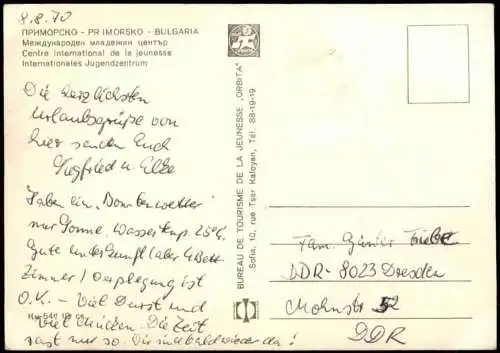 8.8.70
ПРИМОРСКО - PRIMORSKO - BULGARIA
Международен младежки център
Centre international de la jeunesse
Internationales Jugendzentrum
Die herzlichsten
Urlaubsgrüße von
hier senden Euch
Siegfried u. Elke
Haben ein „Bombenwetter"
nur Sonne, Wassertemp. 25°C.
Gute Unterkunft (aber 4 Bett
Zimmer) Verpflegung ist
O.K. - Viel Durst und
viel Mücken. Die Zeit
rast nur so. Die sind bald wieder da!
BUREAU DE TOURISME DE LA JEUNESSE „ORBITA"
Sofia, 10, rue Tsar Kaloyan, Tél. 88-19-19
Fam. Günter
DDR - 8023 Dresden
Mohnstr 52
DDR